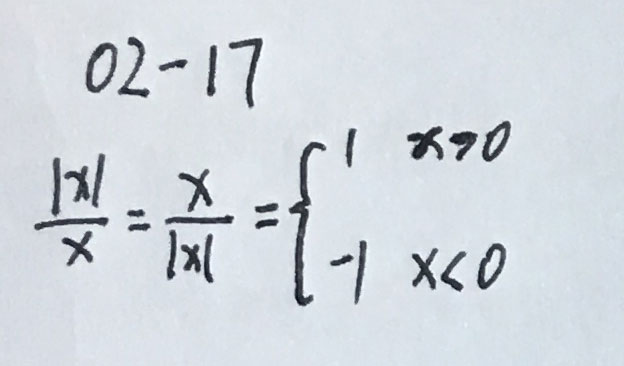 02-17
|x|/x = x/|x| = { 1 x>0
-1 x<0